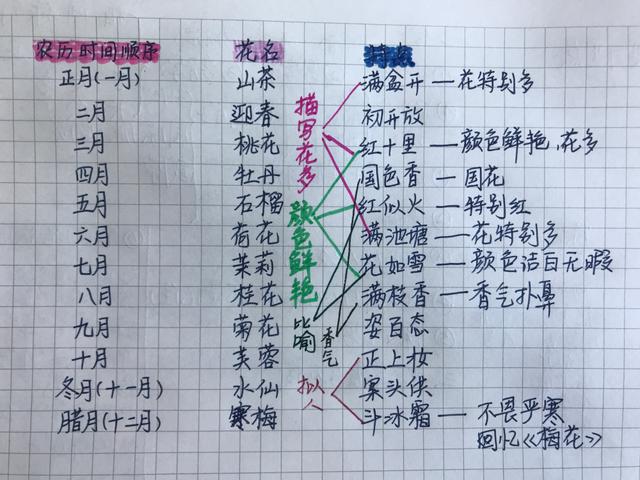 农历时间顺序 花名 特点
正月(一月) 山茶 满盆开 — 花特别多
二月 迎春 初开放
三月 桃花 红十里 — 颜色鲜艳,花多
四月 牡丹 国色香 — 国花
五月 石榴 红似火 — 特别红
六月 荷花 满池塘 — 花特别多
七月 茉莉 花如雪 — 颜色洁白无暇
八月 桂花 满枝香 — 香气扑鼻
九月 菊花 姿百态
十月 芙蓉 正上妆
冬月(十一月) 水仙 案头供
腊月(十二月) 寒梅 斗冰霜 — 不畏严寒
回忆《梅花》
描写花多
颜色鲜艳
比喻
香气
拟人